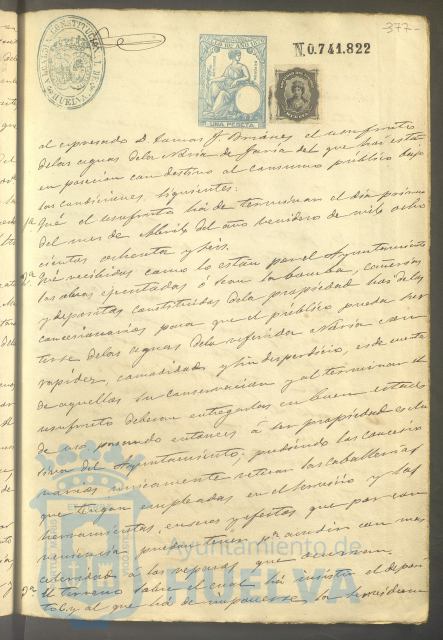 377-
ALCALDIA CONSTITUCIONAL DE HUELVA
N.0.741.822
UNA PESETA
al espresado D. Ramon J. Jimenez el usufruto
de las aguas de la Noria de que hoy está
en posecion con destino al consumo público bajo
las condiciones siguientes:
1ª Qué el usufruto há de terminar el dia primero
del mes de Abril del año venidero de mil ocho
cientos ochenta y seis.
2ª Qué recibidas como lo están por el Ayuntamiento
las obras ejecutadas ó sean la bomba, cañerias
y depositos constituidos de la propiedad hoy de los
concesionarios para que el público pueda sur
tirse de las aguas de la referida Noria con
rapidez, comodidad y sin desperdicio, es de cuenta
de aquellos su conservacion y al terminar el
usufruto deberan entregarlas en buen estado
de uso pasando entonces á ser propiedad esclu
siva del Ayuntamiento; pudiendo los concesio
narios unicamente retirar las caballerias
que tengan empleadas en el servicio y las
herramientas, enseres y efectos que por con
veniencia puedan tener pª acudir con mas
celeridad á las reparas que ocurran.
3ª El terreno sobre el cual há insistir el deposi
to y al que há de imponerse la servidum
Ayuntamiento de
HUELVA